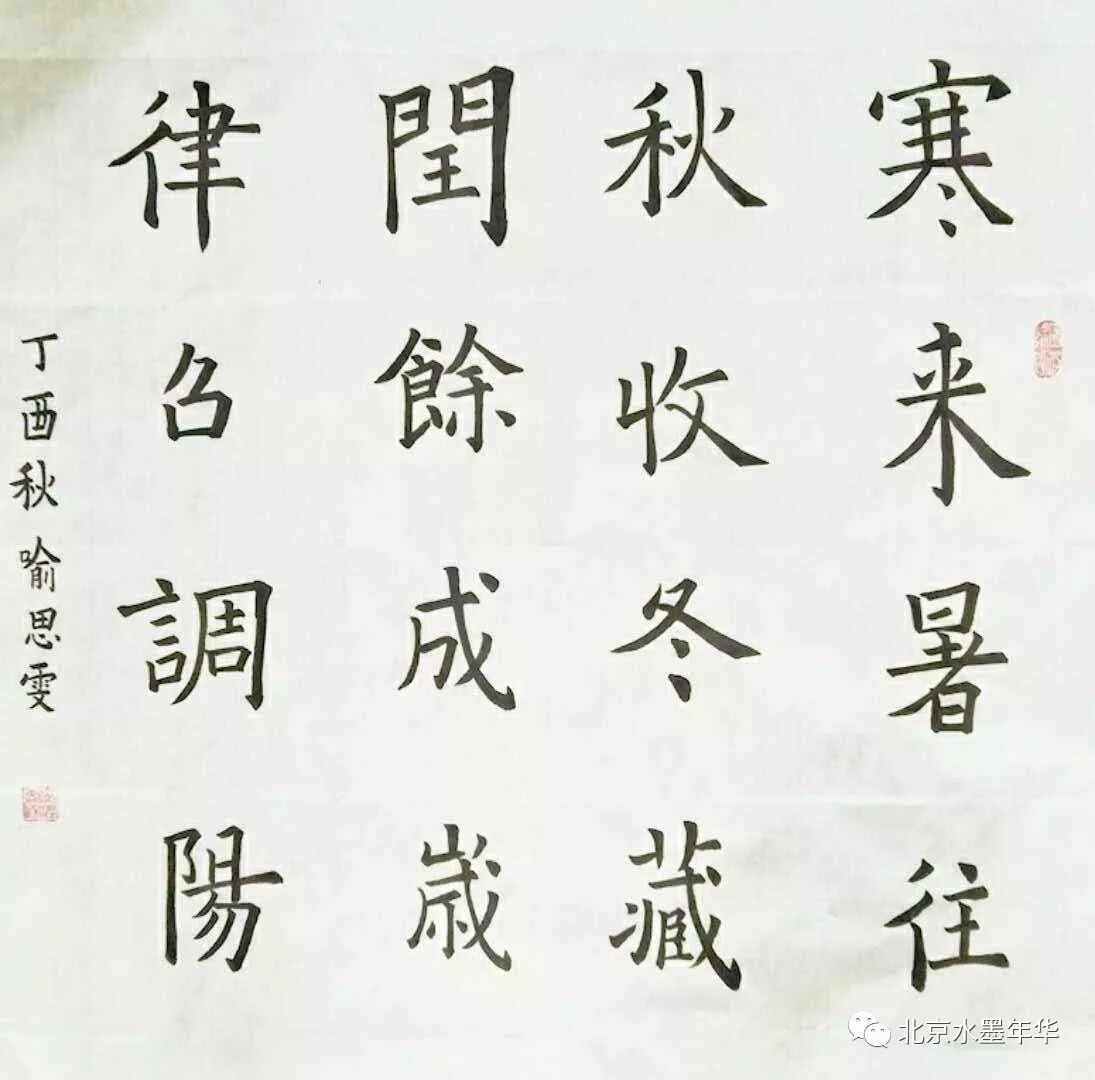 寒来暑往
秋收冬藏
閏餘成嵗
律召調陽
丁酉秋 喻思雯
北京水墨年华